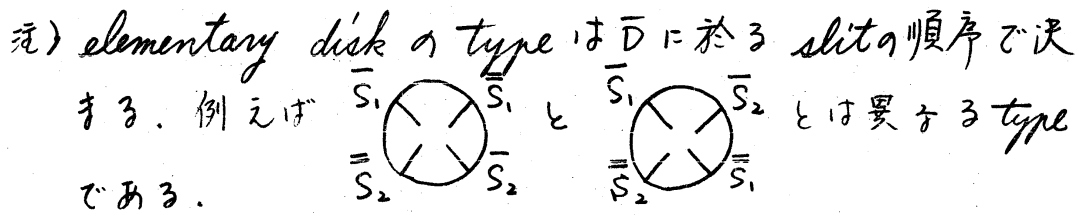 注) elementary disk の type は D̅ に於る slit の順序で決
まる. 例えば S̅₁ S̿₁ S̿₂ S̅₂ と S̅₁ S̅₂ S̿₂ S̿₁ とは異なる type
である.